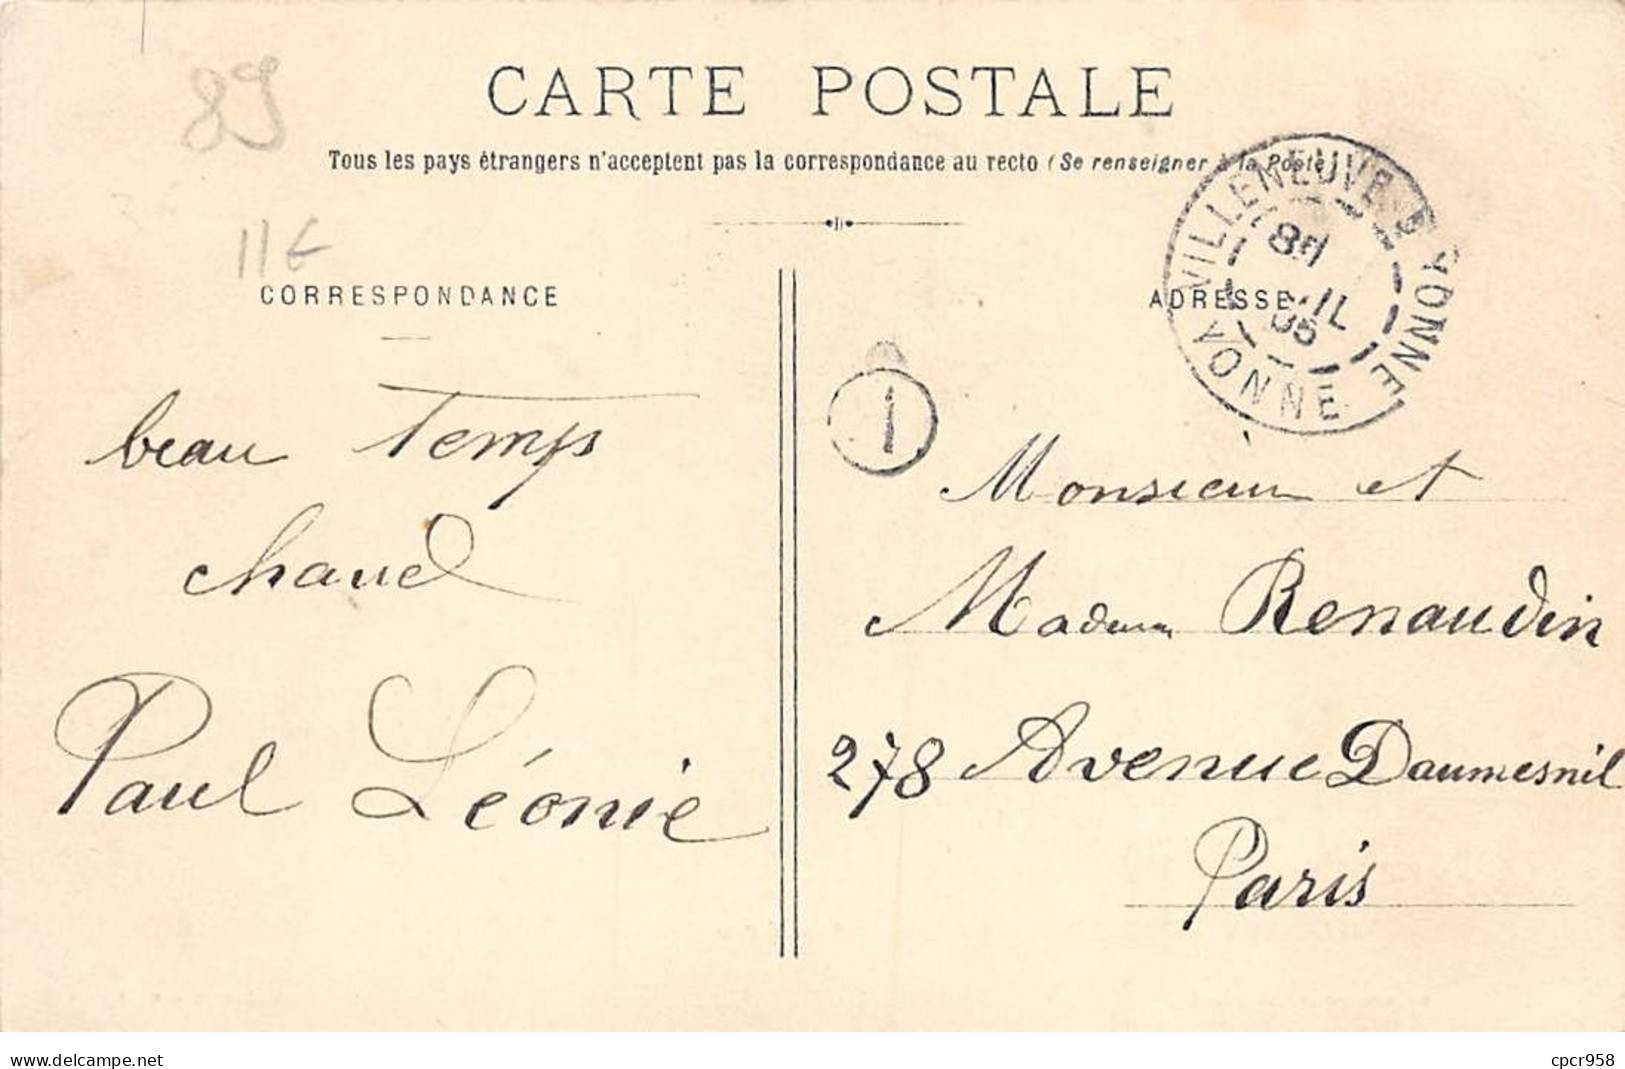 89
CARTE POSTALE
Tous les pays étrangers n'acceptent pas la correspondance au recto (Se renseigner à la Poste)
11€
CORRESPONDANCE
ADRESSE
VILLENEUVE S YONNE
YONNE
05
1
beau Temps
chaud
Paul Léonie
Monsieur et
Madame Renaudin
278 Avenue Daumesnil
Paris
www.delcampe.net
cpcr958